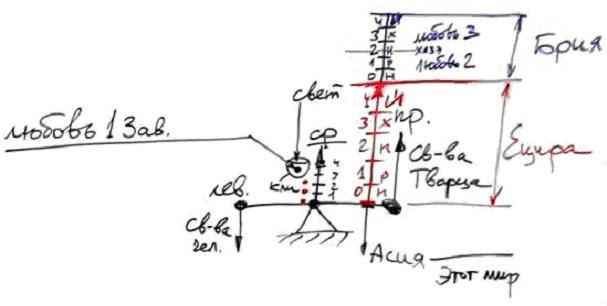 4 И
3 Х
2 Н
1 Р
0 Н
любовь 3
хазэ
любовь 2
Брия
свет
любовь 1 Зав.
ср
4
3
2
1
кли
лев.
Св-ва
чел.
4 И
3 Х
2 Н
1 Р
0 Н
пр.
Св-ва
Творца
Ецира
Асия
Этот мир